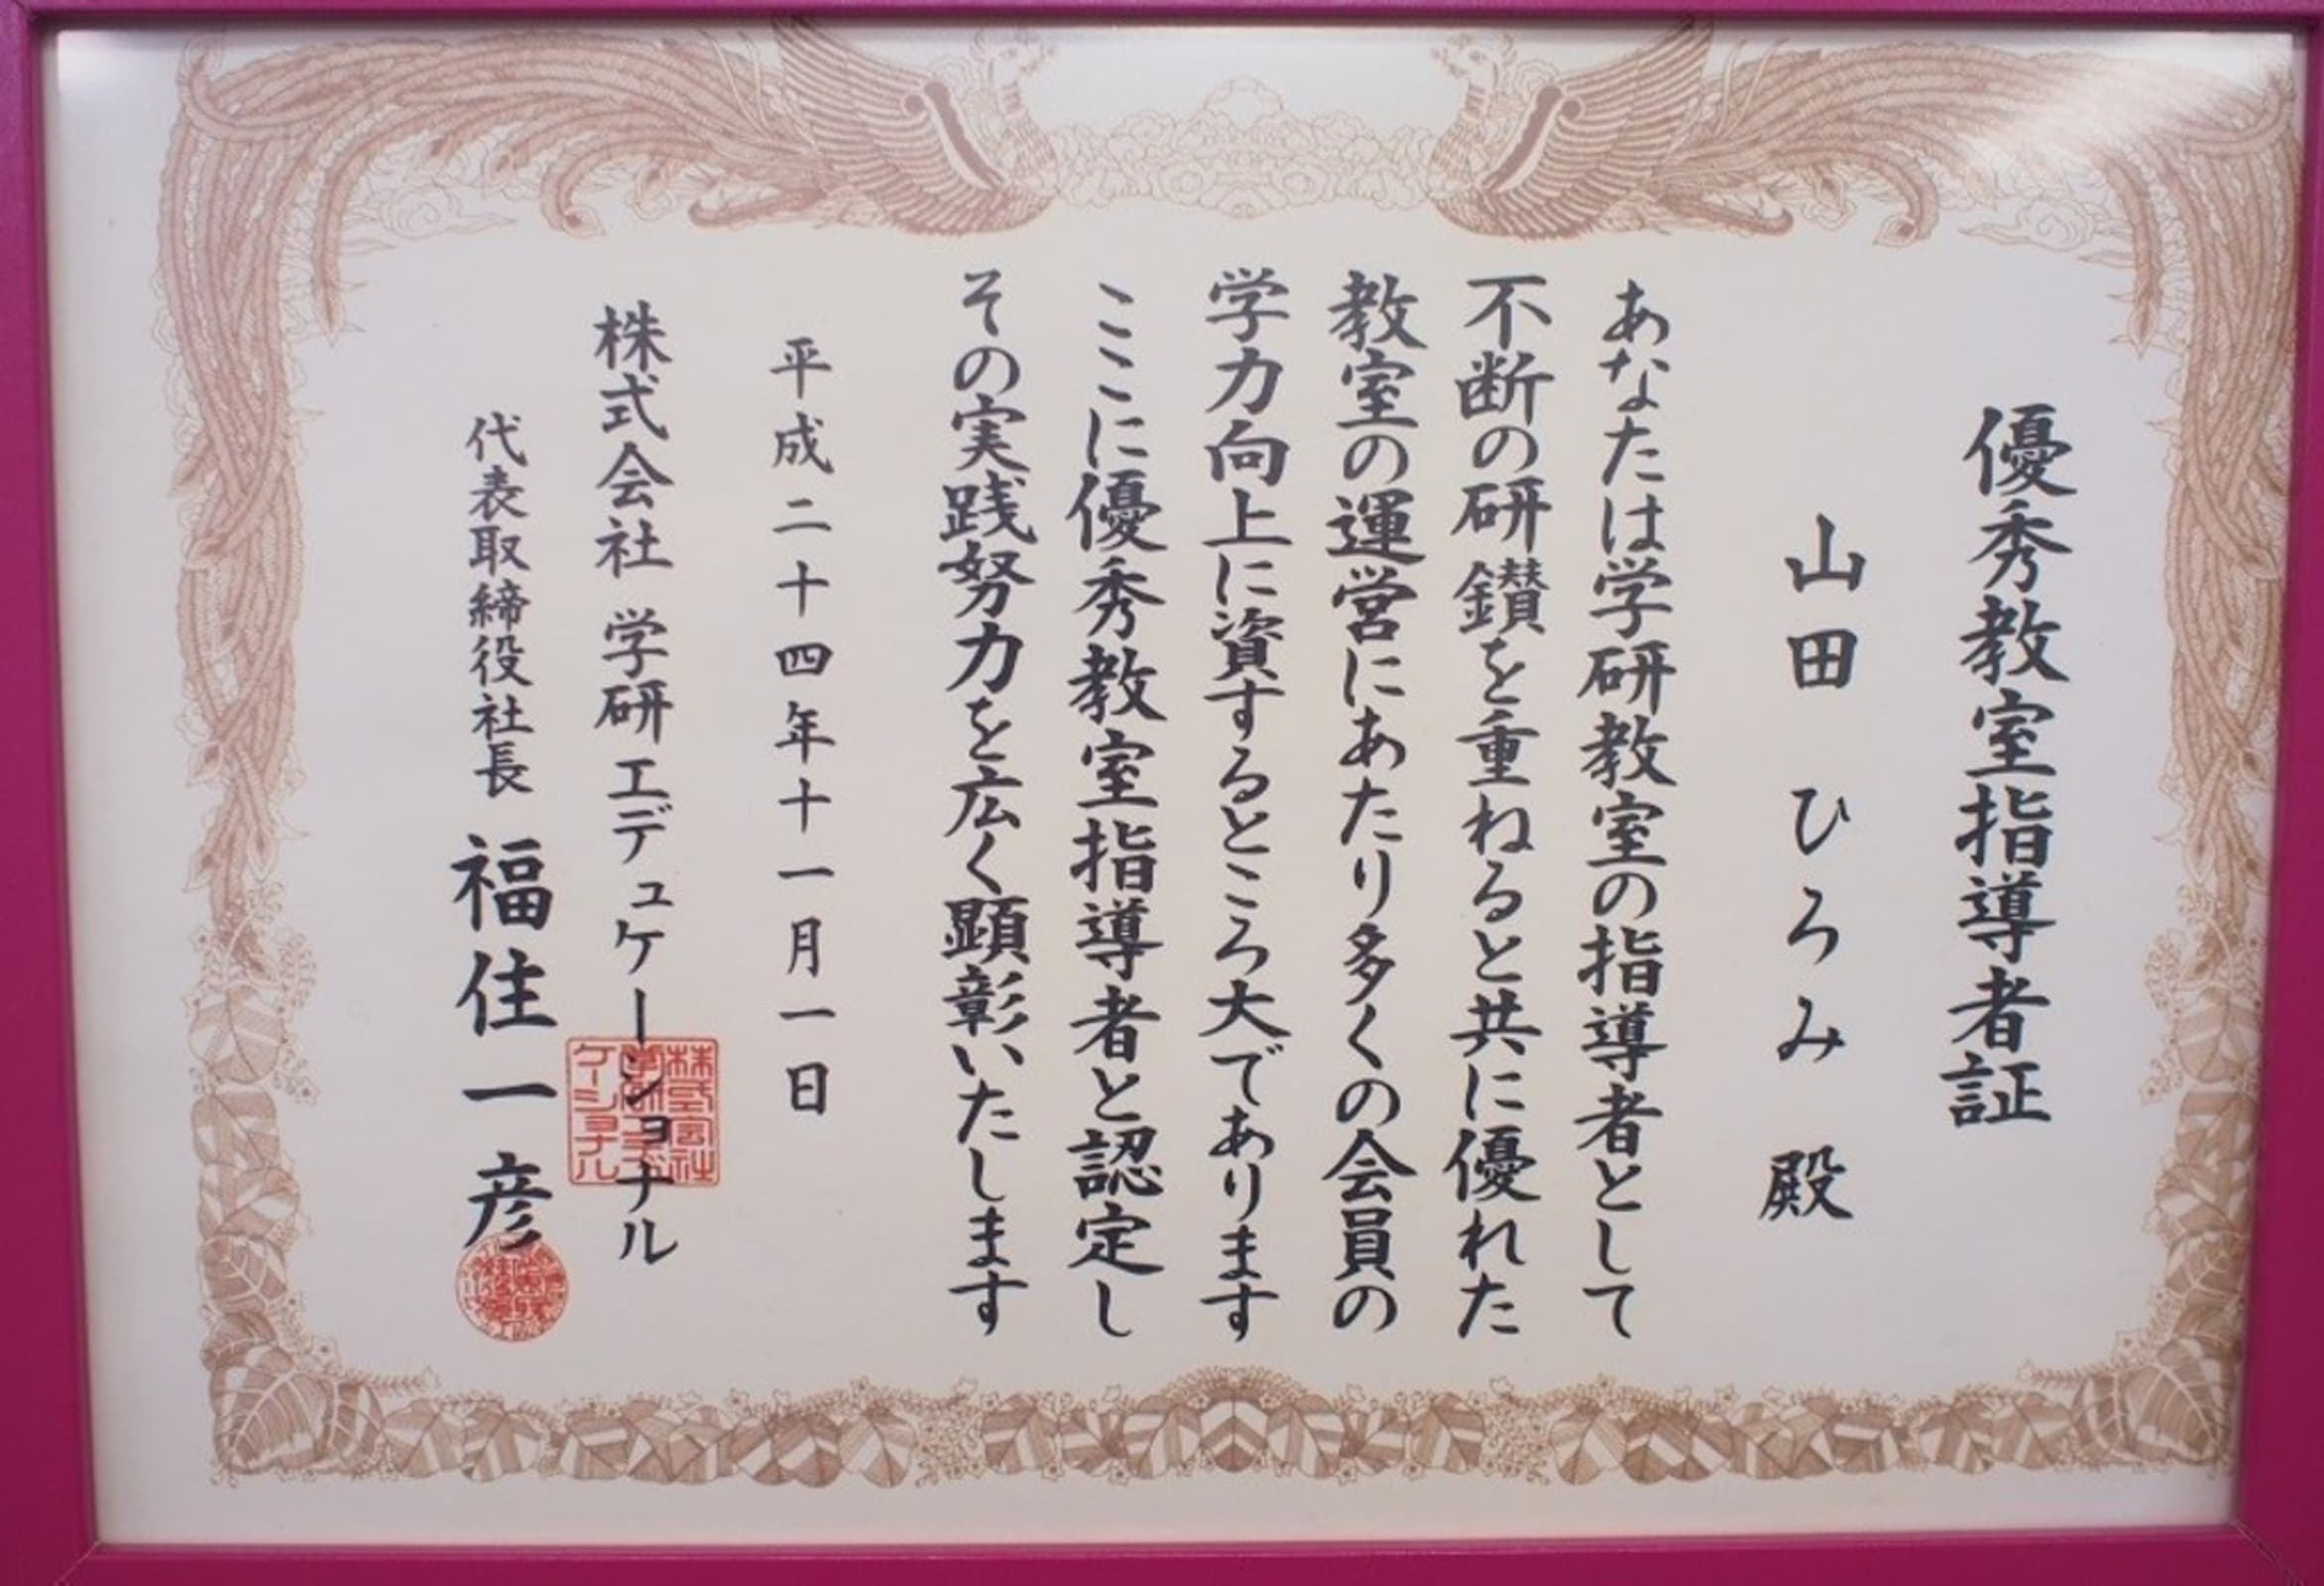 優秀教室指導者証
山田 ひろみ 殿
あなたは学研教室の指導者として
不断の研鑽を重ねると共に優れた
教室の運営にあたり多くの会員の
学力向上に資するところ大であります
ここに優秀教室指導者と認定し
その実践努力を広く顕彰いたします
平成二十四年十一月一日
株式会社 学研エデュケーショナル
代表取締役社長 福住一彦
株式会社
学研エデュ
ケーショナル